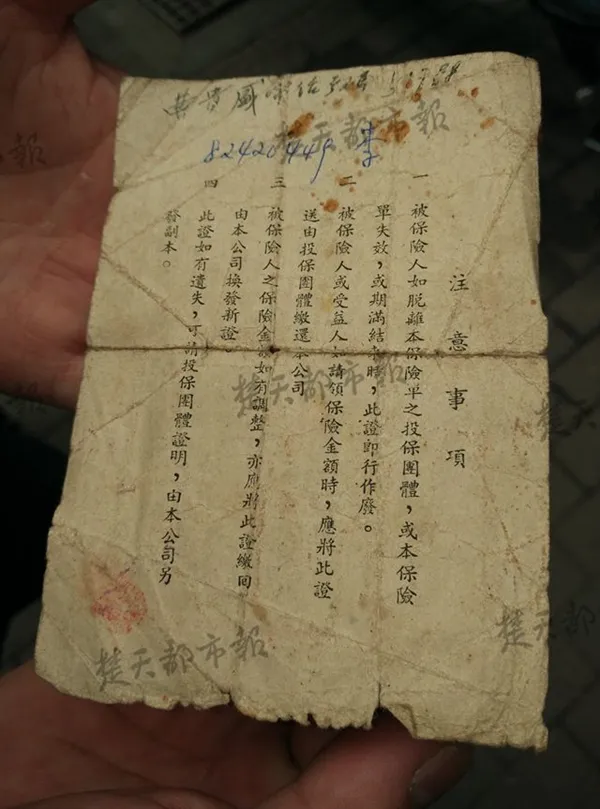 82420449
注意事項
一 被保險人如脫離本保險單之投保團體，或本保險
單失效，或期滿結束時，此證即行作廢。
二 被保險人或受益人如請領保險金額時，應將此證
送由投保團體繳還本公司
三 被保險人之保險金額如有調整，亦應將此證繳回
由本公司換發新證。
四 此證如有遺失，可請投保團體證明，由本公司另
發副本。
楚天都市報
楚天都市報
楚天都市報
楚天都